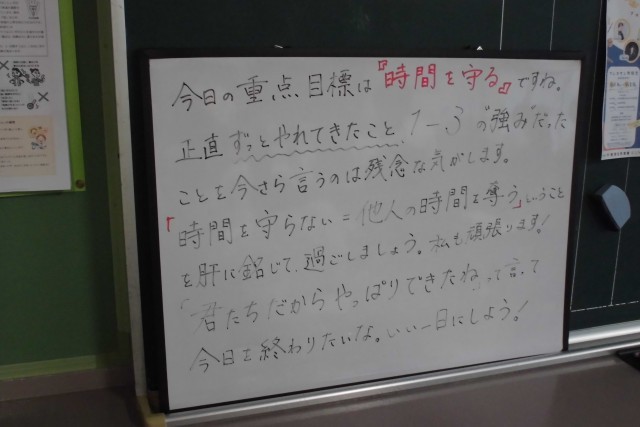 今日の重点目標は『時間を守る』ですね。
正直ずっとやれてきたこと、1-3の"強み"だった
ことを今さら言うのは残念な気がします。
「時間を守らない=他人の時間を奪う」ということ
を肝に銘じて、過ごしましょう。私も頑張ります!
「君たちだからやっぱりできたねって言って
今日を終わりたいな。いい一日にしよう!